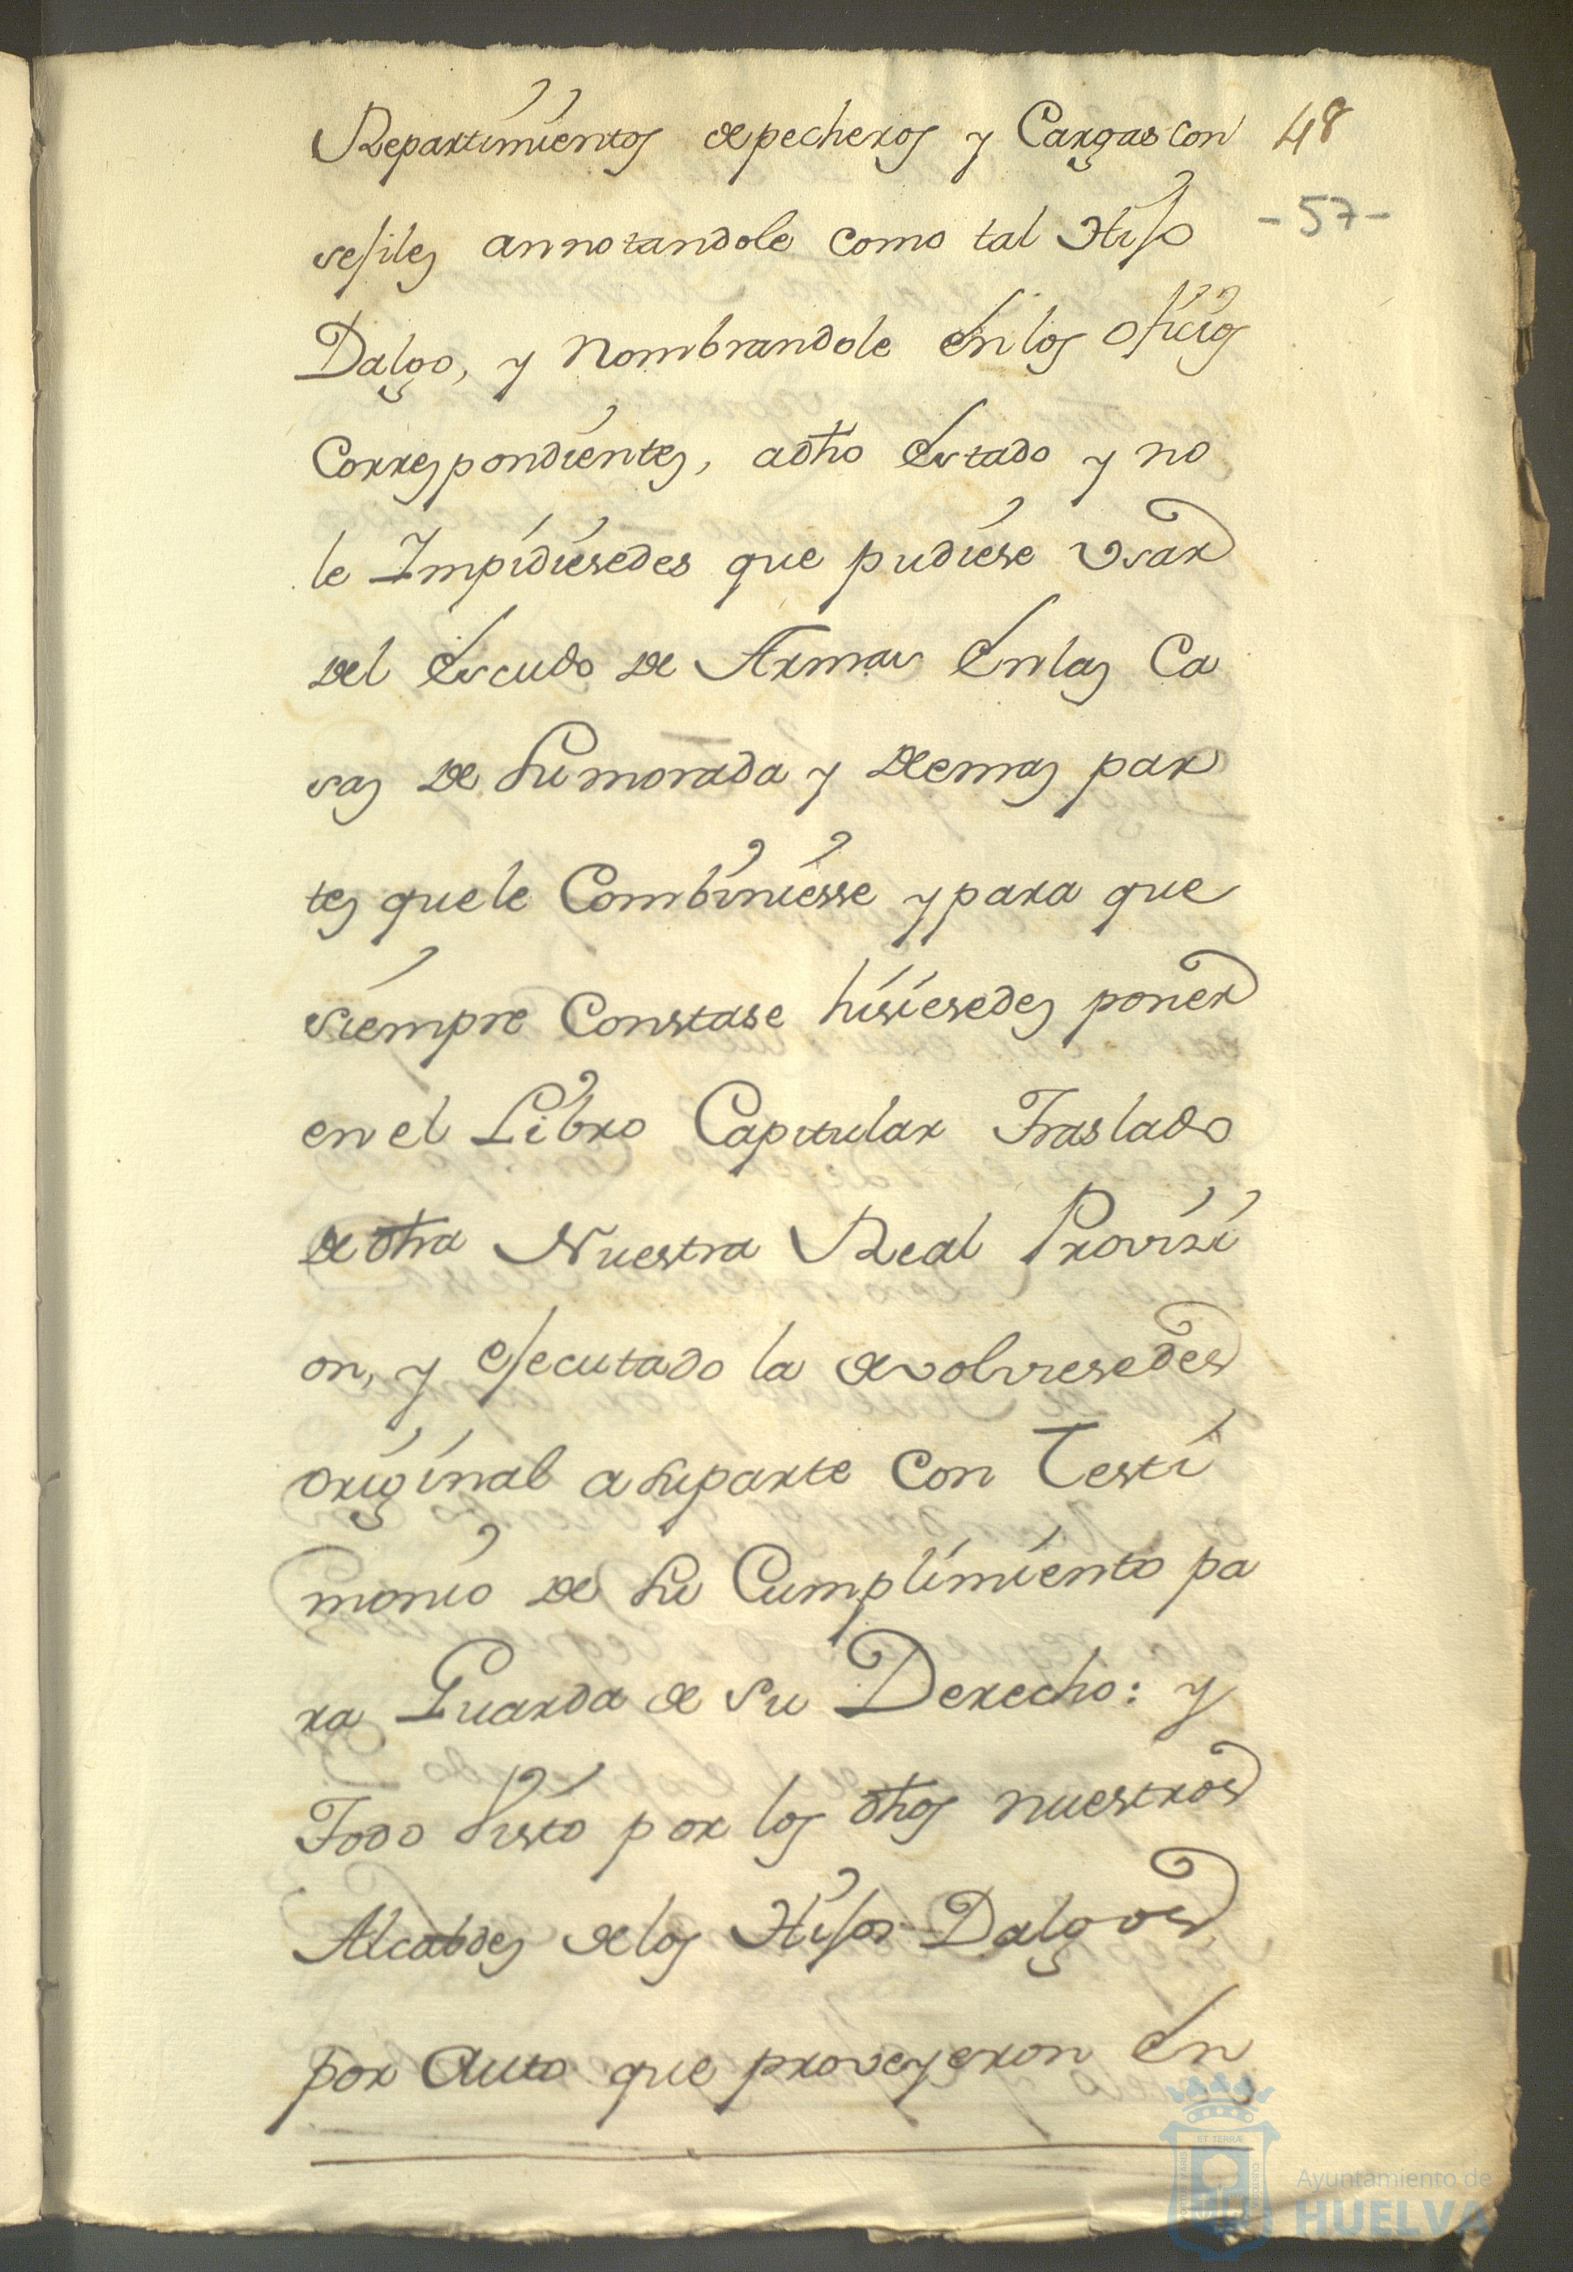 Repartimientos de pecheros y Cargas con 48
sejiles annotandole como tal Hijo -57-
Dalgo, y Nombrandole en los oficios
Correspondientes, a dho estado y no
le Impidiesedes que pudiese Vsar
del escudo de Armas en las Ca
sas de su morada y demas par
tes que le Combiniesse y para que
siempre Constase hisiesedes poner
en el Libro Capitular Traslado
de dha Nuestra Real Provizi
on, y ejecutado la devolviesedes
original a su parte con Testi
monio de su Cumplimiento pa
ra Guarda de su Derecho: y
Todo Visto por los dhos nuestros
Alcaldes de los Hijos Dalgos
por Auto que proveyeron en
Ayuntamiento de
HUELVA